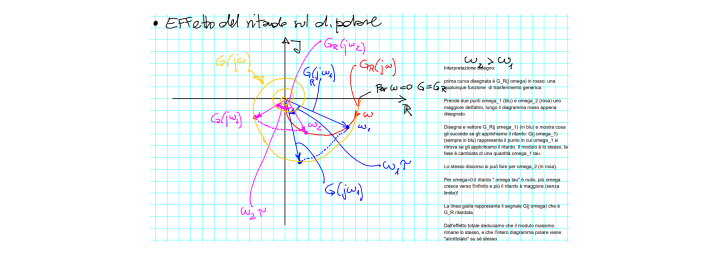 • Effetto del ritardo sul d. polare
J
G_R(jω_2)
ω_2 > ω_1
G(jω)
G_R(jω_1)
G_R(jω)
Per ω=0 G=G_R
ℝ
ω
G(jω_2)
ω_2
ω_1
ω_1 τ
G(jω_1)
ω_2 τ
Interpretazione disegno:
prima curva disegnata è G_R(j omega) in rosso: una
qualunque funzione di trasferimento generica.
Prende due punti omega_1 (blu) e omega_2 (rosa) uno
maggiore dell'altro, lungo il diagramma rosso appena
disegnato
Disegna e vettore G_R(j omega_1) (in blu) e mostra cosa
gli succede se gli applichiamo il ritardo: G(j omega_1)
(sempre in blu) rappresenta il punto in cui omega_1 si
ritrova se gli applichiamo il ritardo. Il modulo è lo stesso, la
fase è cambiata di una quantità omega_1 tau.
Lo stesso discorso si può fare per omega_2 (in rosa).
Per omega=0 il ritardo " omega tau" è nullo, più omega
cresce verso l'infinito e più il ritardo è maggiore (senza
limite)!
La linea gialla rappresenta il segnale G(j omega) che è
G_R ritardata.
Dall'effetto totale deduciamo che il modulo massimo
rimane lo stesso, e che l'intero diagramma polare viene
"arrotolato" su sé stesso